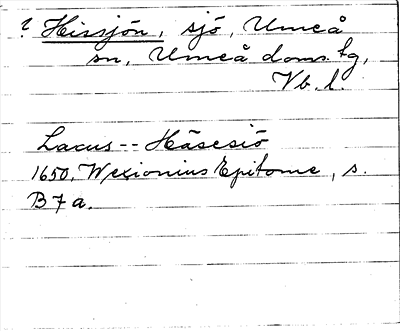 ? Hissjön, sjö, Umeå
sn, Umeå doms. tg,
Vb. l.
Lacus -- Häsesiö
1650, Wexionius Epitome, s.
B7a.